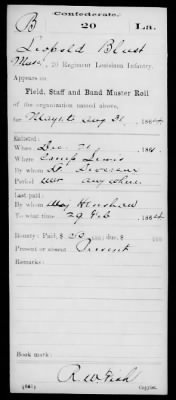 Confederate.
B 20 La.
Leopold Blust
Musn', 20 Regiment Louisiana Infantry.
Appears on
Field, Staff and Band Muster Roll
of the organization named above,
for May 1 to Aug 31, 1864
Enlisted:
When Dec 21, 186
Where Camp Lewis
By whom Lt.
Period war anywhere
Last paid:
By whom Maj Henshaw
To what time 29 Feb, 1864
Bounty: Paid, $ 50 ; due, $ 100
Present or absent Present
Remarks:
Book mark:
R W Fish
(861) Copyist.